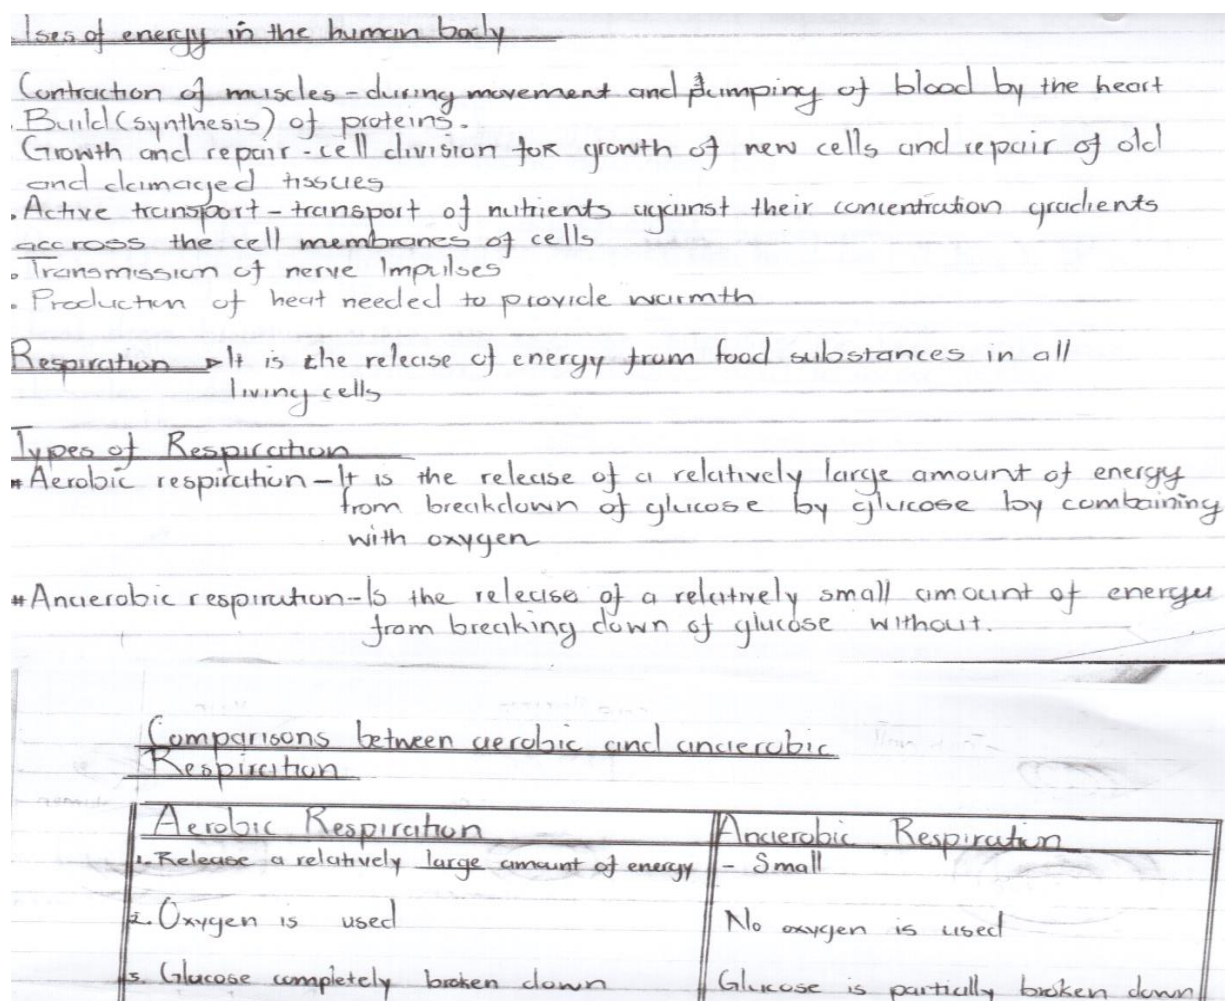 Uses of energy in the human body
Contraction of muscles - during movement and pumping of blood by the heart
. Build (synthesis) of proteins.
Growth and repair - cell division for growth of new cells and repair of old
and damaged tissues
. Active transport - transport of nutrients against their concentration gradients
accross the cell membranes of cells
. Transmission of nerve Impulses
. Production of heat needed to provide warmth
Respiration ➢ It is the release of energy from food substances in all
living cells
Types of Respiration
* Aerobic respiration - It is the release of a relatively large amount of energy
from breakdown of glucose by glucose by combaining
with oxygen
* Anaerobic respiration - Is the release of a relatively small amount of energy
from breaking down of glucose without.
Comparisons between aerobic and anaerobic
Respiration
Aerobic Respiration Anaerobic Respiration
1. Release a relatively large amount of energy - Small
2. Oxygen is used No oxygen is used
3. Glucose completely broken down Glucose is partially broken down